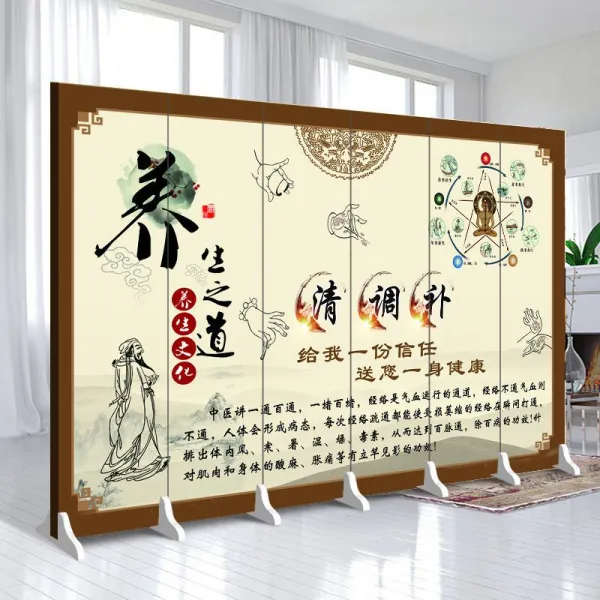 养
生之道
养生文化
清 调 补
给我一份信任
送您一身健康
中医讲一通百通，一堵百堵，经络是气血运行的通道，经络不通气血则
不通，人体会形成病态，每次经络疏通都能使受很萎缩的经络在瞬间打通，
排出体内风、寒、暑、湿、燥、毒素，从而达到百脉通，除百病的功效!针
对肌肉和身体的酸麻、胀痛等有立罕见影的功效!